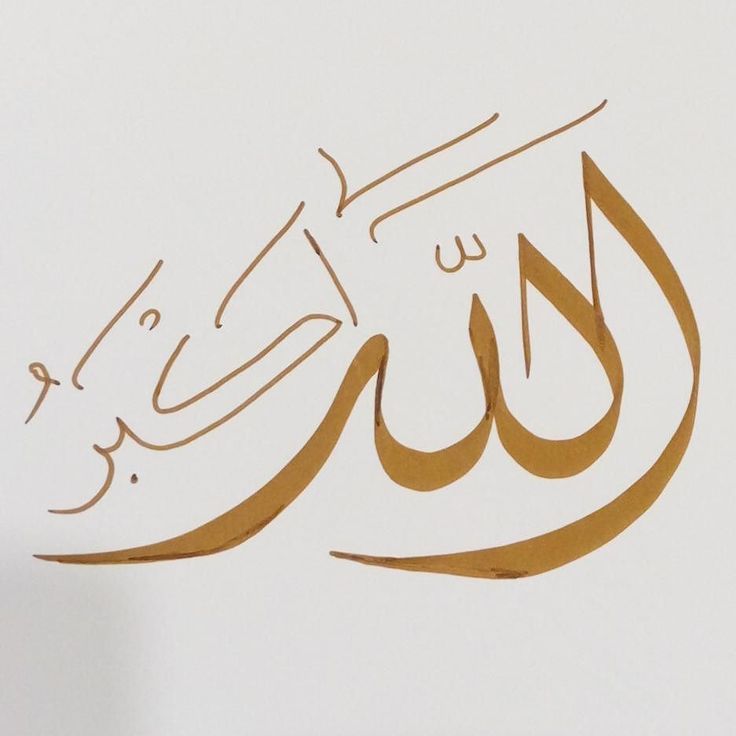 اللّه اكْبرُ